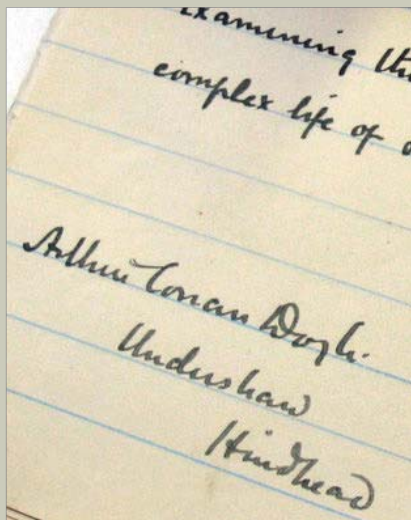 examining the
complex life of
Arthur Conan Doyle.
Undershaw
Hindhead